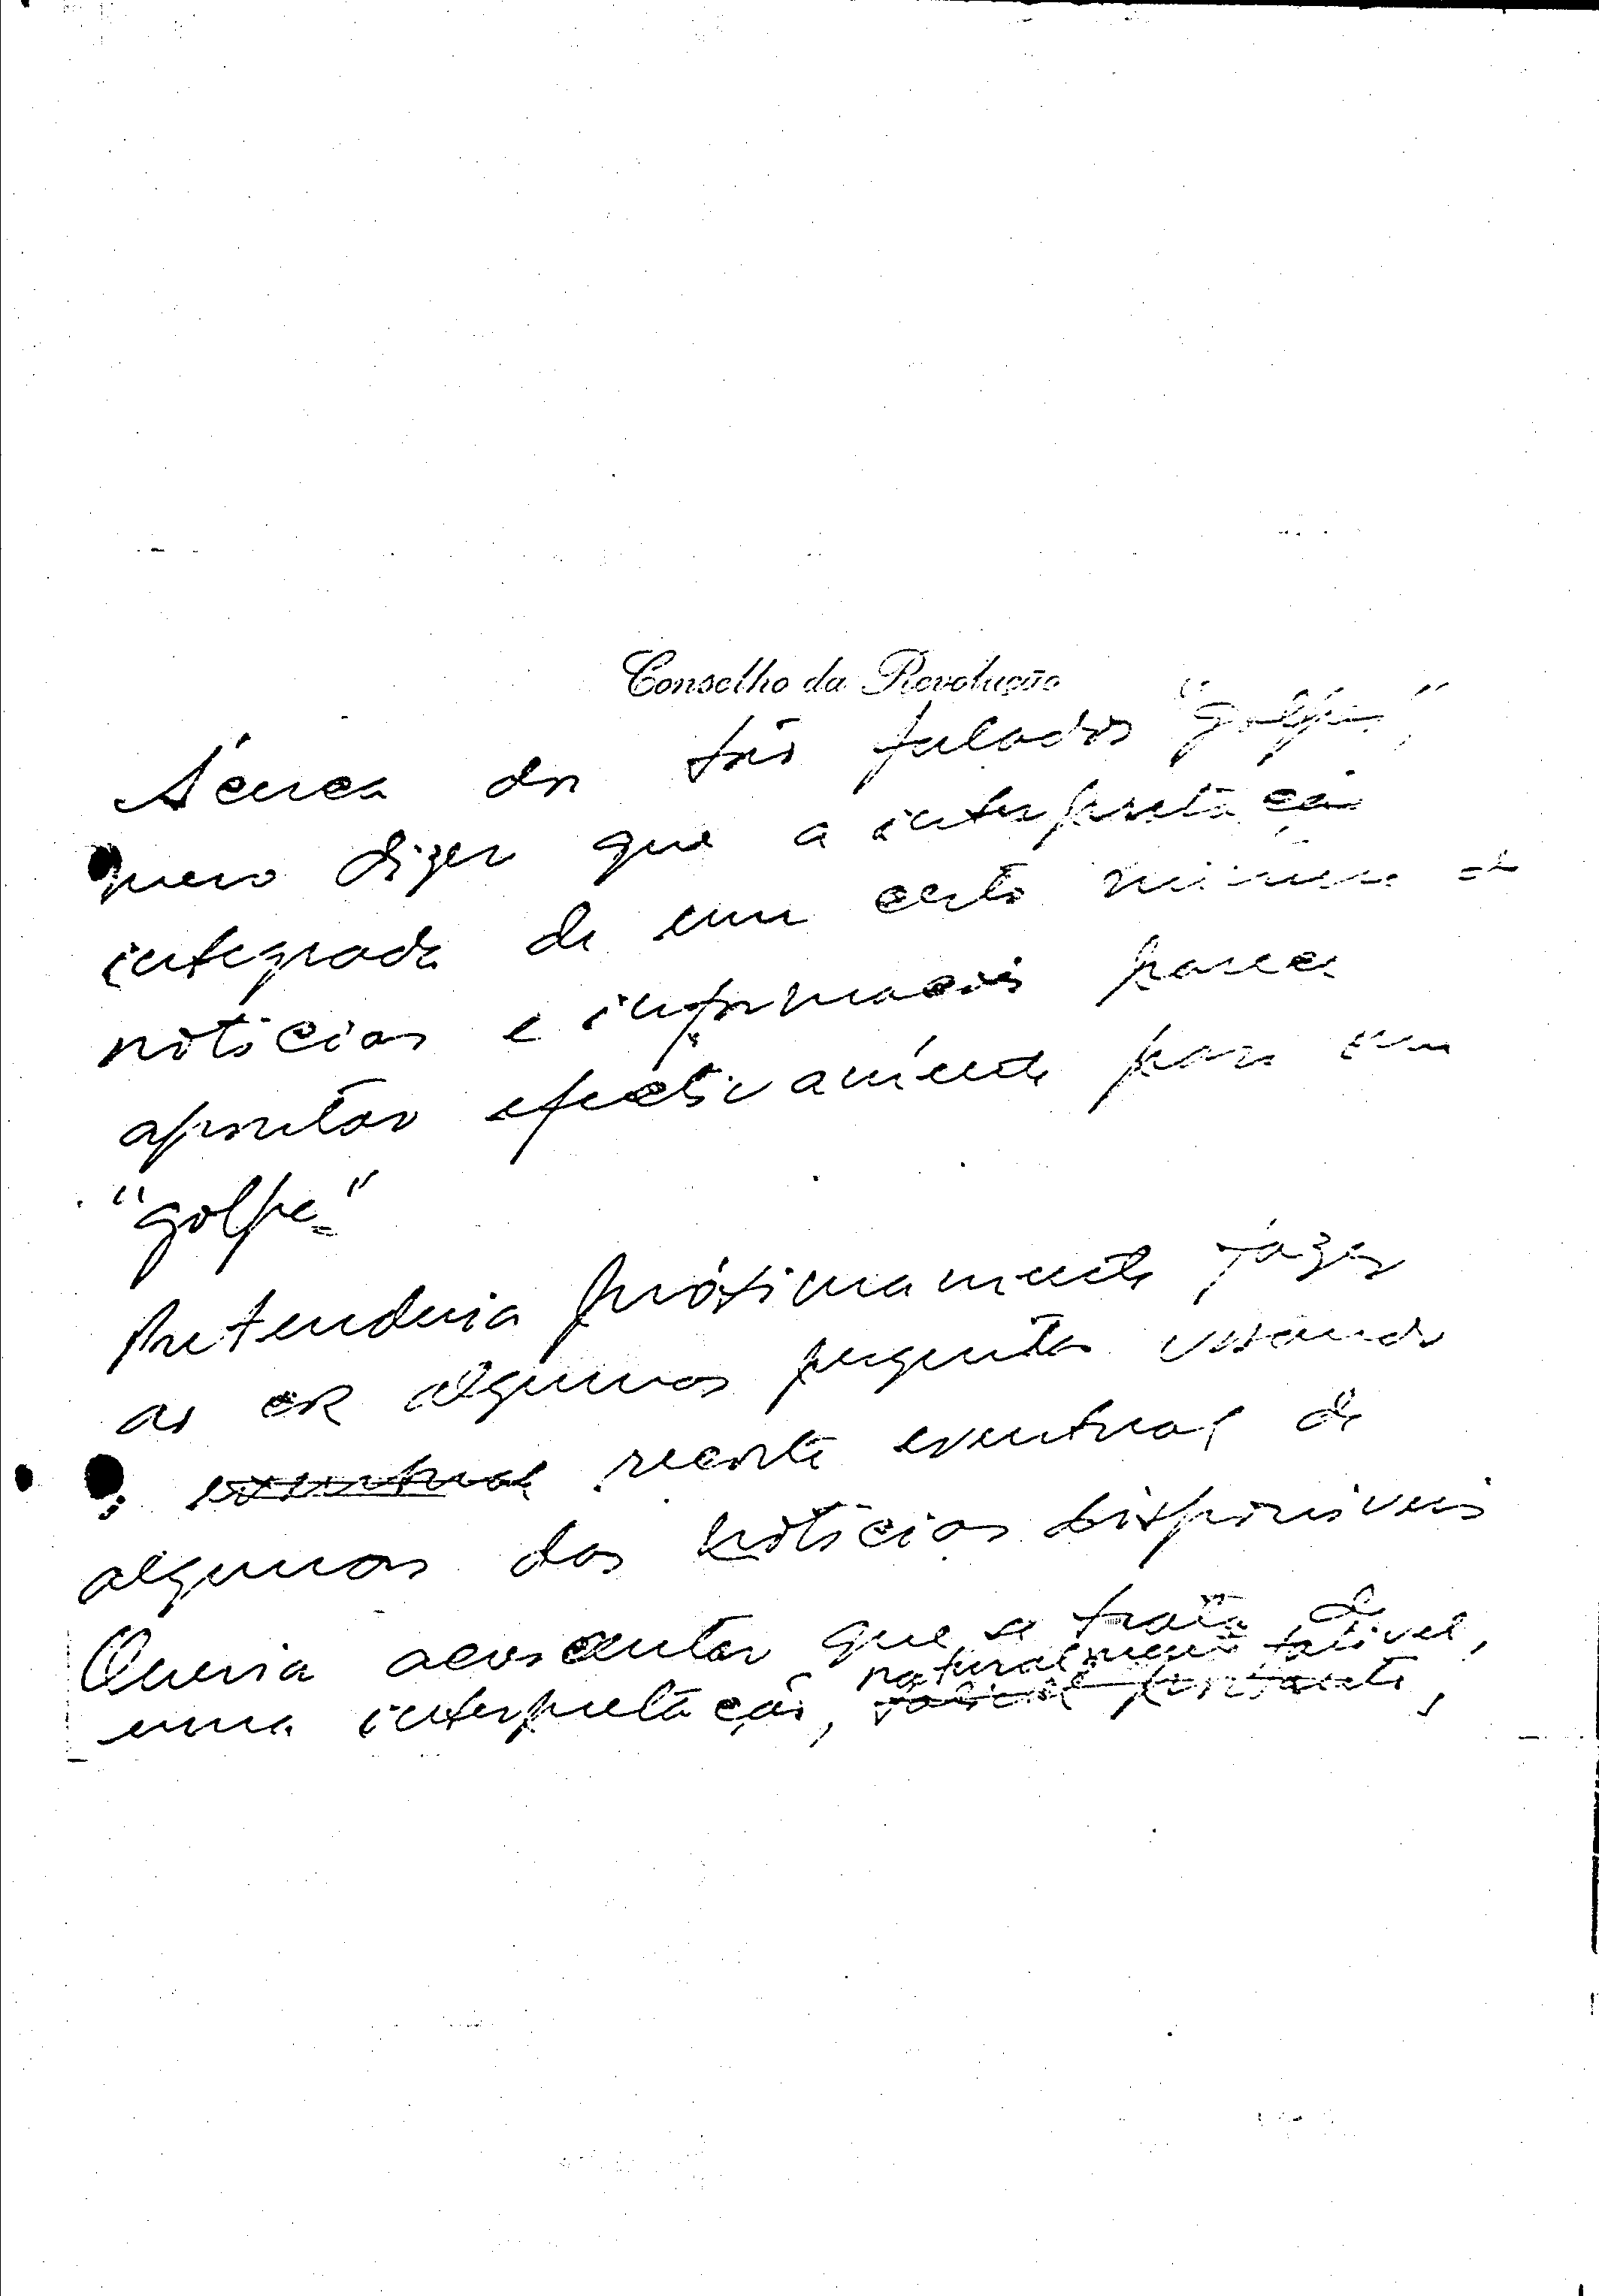 Conselho da Revolução
Ácerca dos tão falados "golpes",
quero dizer que a interpretação
integrada de um certo número de
notícias e informações parece
apontar efectivamente para um
"golpe"
Pretenderia próximamente fazer
ao CR algumas perguntas visando
o eventual recorte eventual de
algumas das notícias disponíveis
Queria acrescentar que se trata de
naturalmente falível,
uma interpretação,